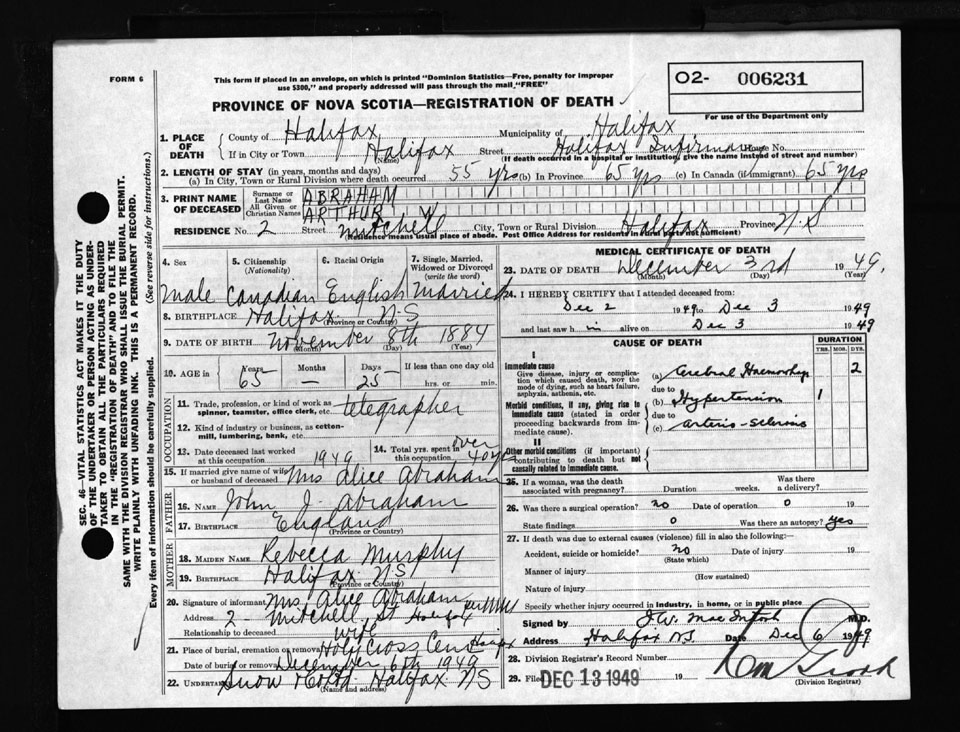 FORM 6
This form if placed in an envelope, on which is printed "Dominion Statistics—Free, penalty for improper
use $300," and properly addressed will pass through the mail, "FREE"
O2- 006231
PROVINCE OF NOVA SCOTIA—REGISTRATION OF DEATH
For use of the Department only
1. PLACE OF DEATH
County of Halifax Municipality of Halifax
If in City or Town Halifax Street Halifax Infirmary House No.
(Name) (If death occurred in a hospital or institution, give the name instead of street and number)
2. LENGTH OF STAY (in years, months and days)
(a) In City, Town or Rural Division where death occurred 55 yrs (b) In Province 65 yrs (c) In Canada (if immigrant) 65 yrs
3. PRINT NAME OF DECEASED
Surname or Last Name ABRAHAM
All Given or Christian Names ARTHUR W
RESIDENCE No. 2 Street Mitchell City, Town or Rural Division Halifax Province N.S
(Residence means usual place of abode. Post Office Address for residents in rural not sufficient)
4. Sex
5. Citizenship (Nationality)
6. Racial Origin
7. Single, Married, Widowed or Divorced (write the word)
Male Canadian English Married
8. BIRTHPLACE Halifax N-S
(Province or Country)
9. DATE OF BIRTH November 8th 1884
(Month) (Day) (Year)
10. AGE in Years 65 Months — Days 25 If less than one day old
hrs. or min.
OCCUPATION
11. Trade, profession, or kind of work as
spinner, teamster, office clerk, etc. telegrapher
12. Kind of industry or business, as cotton-
mill, lumbering, bank, etc.
13. Date deceased last worked
at this occupation 1949
14. Total yrs. spent in
this occupation over 40 yrs
15. If married give name of wife
or husband of deceased Mrs Alice Abraham
FATHER
16. NAME John J. Abraham
17. BIRTHPLACE England
(Province or Country)
MOTHER
18. MAIDEN NAME Rebecca Murphy
19. BIRTHPLACE Halifax NS
(Province or Country)
20. Signature of informant Mrs Alice Abraham
Address 2 - Mitchell St Halifax
Relationship to deceased wife
21. Place of burial, cremation or removal Holy Cross Cem Halifax
Date of burial or removal December 6th 1949
22. UNDERTAKER Snow Halifax NS
(Name and address)
MEDICAL CERTIFICATE OF DEATH
23. DATE OF DEATH December 3rd 1949.
(Month) (Day) (Year)
24. I HEREBY CERTIFY that I attended deceased from:
Dec 2 1949 to Dec 3 1949
and last saw h im alive on Dec 3 1949
CAUSE OF DEATH
DURATION
YRS. MOS. DYS.
I
Immediate cause
Give disease, injury or complica-
tion which caused death, NOT the
mode of dying, such as heart failure,
asphyxia, asthenia, etc.
(a) Cerebral Haemorrhage 2
due to
Morbid conditions, if any, giving rise to
immediate cause (stated in order
proceeding backwards from im-
mediate cause).
(b) Hypertension 1
due to
(c) arterio-sclerosis
II
Other morbid conditions (if important)
contributing to death but not
causally related to immediate cause.
25. If a woman, was the death
associated with pregnancy? Duration weeks. Was there
a delivery?
26. Was there a surgical operation? no Date of operation 0 19
State findings 0 Was there an autopsy? yes
27. If death was due to external causes (violence) fill in also the following:—
Accident, suicide or homicide? no Date of injury 19
(State which)
Manner of injury
(How sustained)
Nature of injury
Specify whether injury occurred in industry, in home, or in public place
Signed by J.W. MacIntosh M.D.
Address Halifax NS Date Dec 6 1949
28. Division Registrar's Record Number
29. Filed DEC 13 1949 19
(Division Registrar)
SEC. 46—VITAL STATISTICS ACT MAKES IT THE DUTY
OF THE UNDERTAKER OR PERSON ACTING AS UNDER-
TAKER TO OBTAIN ALL THE PARTICULARS REQUIRED
IN THE "REGISTRATION OF DEATH" AND TO FILE THE
SAME WITH THE DIVISION REGISTRAR WHO SHALL ISSUE THE BURIAL PERMIT.
WRITE PLAINLY WITH UNFADING INK. THIS IS A PERMANENT RECORD.
Every item of information should be carefully supplied. (See reverse side for instructions.)